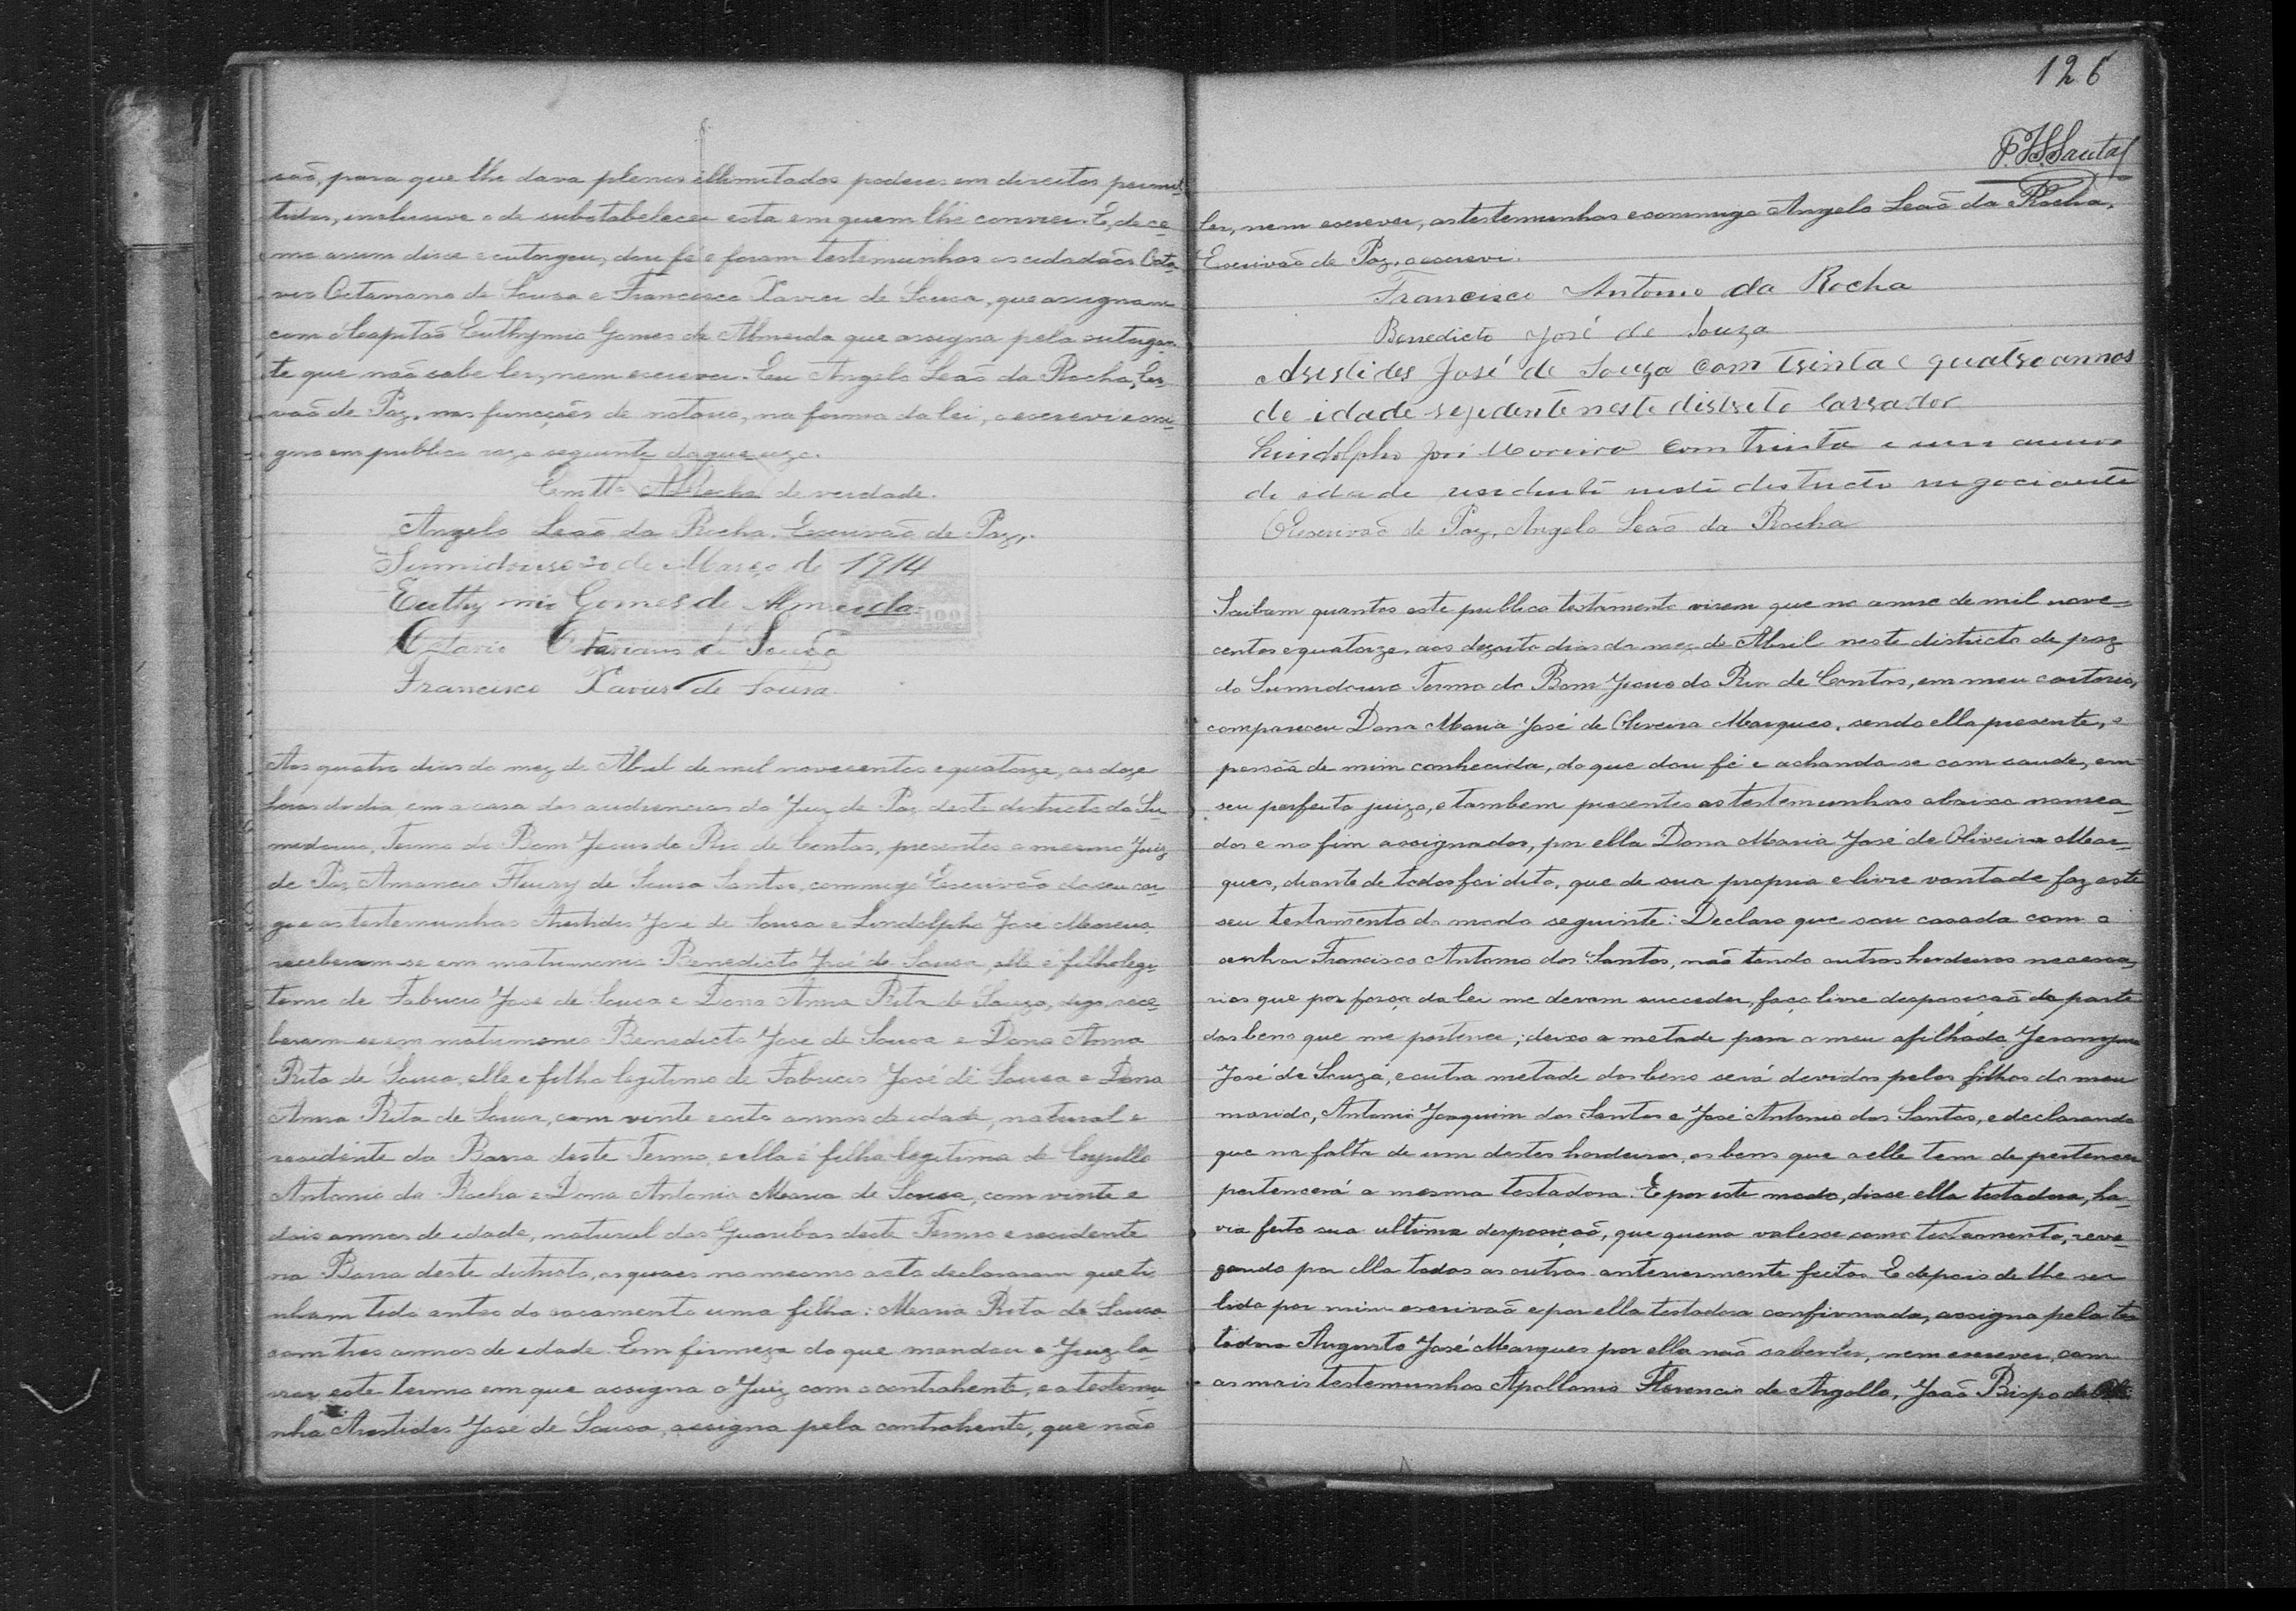 são, para que lhe dava plenos illimitados poderes em direitos permit-
tidos, inclusive o de substabelecer esta em quem lhe convier. E, de co-
mo assim disse e outorgou, dou fé e foram testemunhas os cidadãos Octa-
vio Octaviano de Sousa e Francisco Xavier de Sousa, que assignam
com o Capitão Euthymio Gomes de Almeida que assigna pela outorgan-
te que não sabe ler, nem escrever. Eu Angelo Leão da Rocha, Escri-
vão de Paz, nas funcções de notario, na forma da lei, o escrevi e assi-
gno em publico raso seguinte de que uzo.
Em ttº ALRocha de verdade.
Angelo Leão da Rocha. Escrivão de Paz.
Sumidouro 20 de Março de 1914
Euthymio Gomes de Almeida
Octavio Octaviano de Souza
Francisco Xavier de Sousa
Aos quatro dias do mez de Abril de mil novecentos e quatorze, as doze
horas do dia, em a casa das audiencias do Juiz de Paz deste districto do Su-
midouro, Termo do Bom Jesus do Rio de Contas, presentes o mesmo Juiz
de Paz Amancio Fleury de Sousa Santos, commigo Escrivão do seu car-
go e as testemunhas Aristides José de Sousa e Lindolpho José Moreira
receberam-se em matrimonio Benedicto José de Sousa, elle é filho legi-
timo de Fabricio José de Sousa e Dona Anna Rita de Souza, digo, rece-
beram-se em matrimonio Benedicto José de Sousa e Dona Anna
Rita de Sousa, elle e filho legitimo de Fabricio José de Sousa e Dona
Anna Rita de Sousa, com vinte e oito annos de idade, natural e
residente da Barra deste Termo, e ella é filha legitima de Cyrillo
Antonio da Rocha e Dona Antonia Maria de Sousa, com vinte e
dois annos de edade, natural das Guaribas deste Termo e residente
na Barra deste districto, os quaes no mesmo acto declararam que ti-
nham tido antes do casamento uma filha: Maria Rita de Sousa
com tres annos de edade. Em firmeza do que mandou o Juiz la-
vrar este termo em que assigna o Juiz com o contrahente, e a testemu-
nha Aristides José de Sousa, assigna pela contrahente, que não
126
ler, nem escrever, as testemunhas e commigo Angelo Leão da Rocha,
Escrivão de Paz, o escrevi.
Francisco Antonio da Rocha
Benedicto José de Souza
Aristides José de Souza com trinta e quatro annos
de idade rezidente neste distreto lavrador
Lindolpho José Moreira com trinta e um annos
de idade residente neste districto negociante
O Escrivão de Paz, Angelo Leão da Rocha
Saibam quantos este publico testamento virem que no anno de mil nove-
centos e quatorze, aos dezoito dias do mez de Abril neste districto de paz
do Sumidouro Termo do Bom Jesus do Rio de Contas, em meu cartorio,
compareceu Dona Maria José de Oliveira Marques, sendo ella presente, e
pessôa de mim conhecida, do que dou fé e achando-se com saude, em
seu perfeito juizo, e tambem presentes as testemunhas abaixo nomea-
dos e no fim assignados, por ella Dona Maria José de Oliveira Mar-
ques, diante de todos foi dito, que de sua propria e livre vontade faz este
seu testamento do modo seguinte: Declaro que sou casada com o
senhor Francisco Antonio dos Santos, não tendo outros herdeiros necessa-
rios que por força da lei me devam succeder, faço livre desposição da parte
dos bens que me pertence; deixo a metade para o meu afilhado Jeronymo
José de Souza, e outra metade dos bens será devidos pelos filhos do meu
marido, Antonio Joaquim dos Santos e José Antonio dos Santos, e declarando
que na falta de um destes herdeiros, os bens que a elle tem de pertencer
pertencerá a mesma testadora. E por este modo, disse ella testadora, ha-
via feito sua ultima desposição, que queria valesse como testamento, revo-
gando por ella todos os outros anteriormente feitos. E depois de lhe ser
lido por mim escrivão e por ella testadora confirmado, assigna pela tes-
tadora Augusto José Marques por ella não saber ler, nem escrever, com
as mais testemunhas Apollonio Florencio de Argollo, João Bispo de Oli-